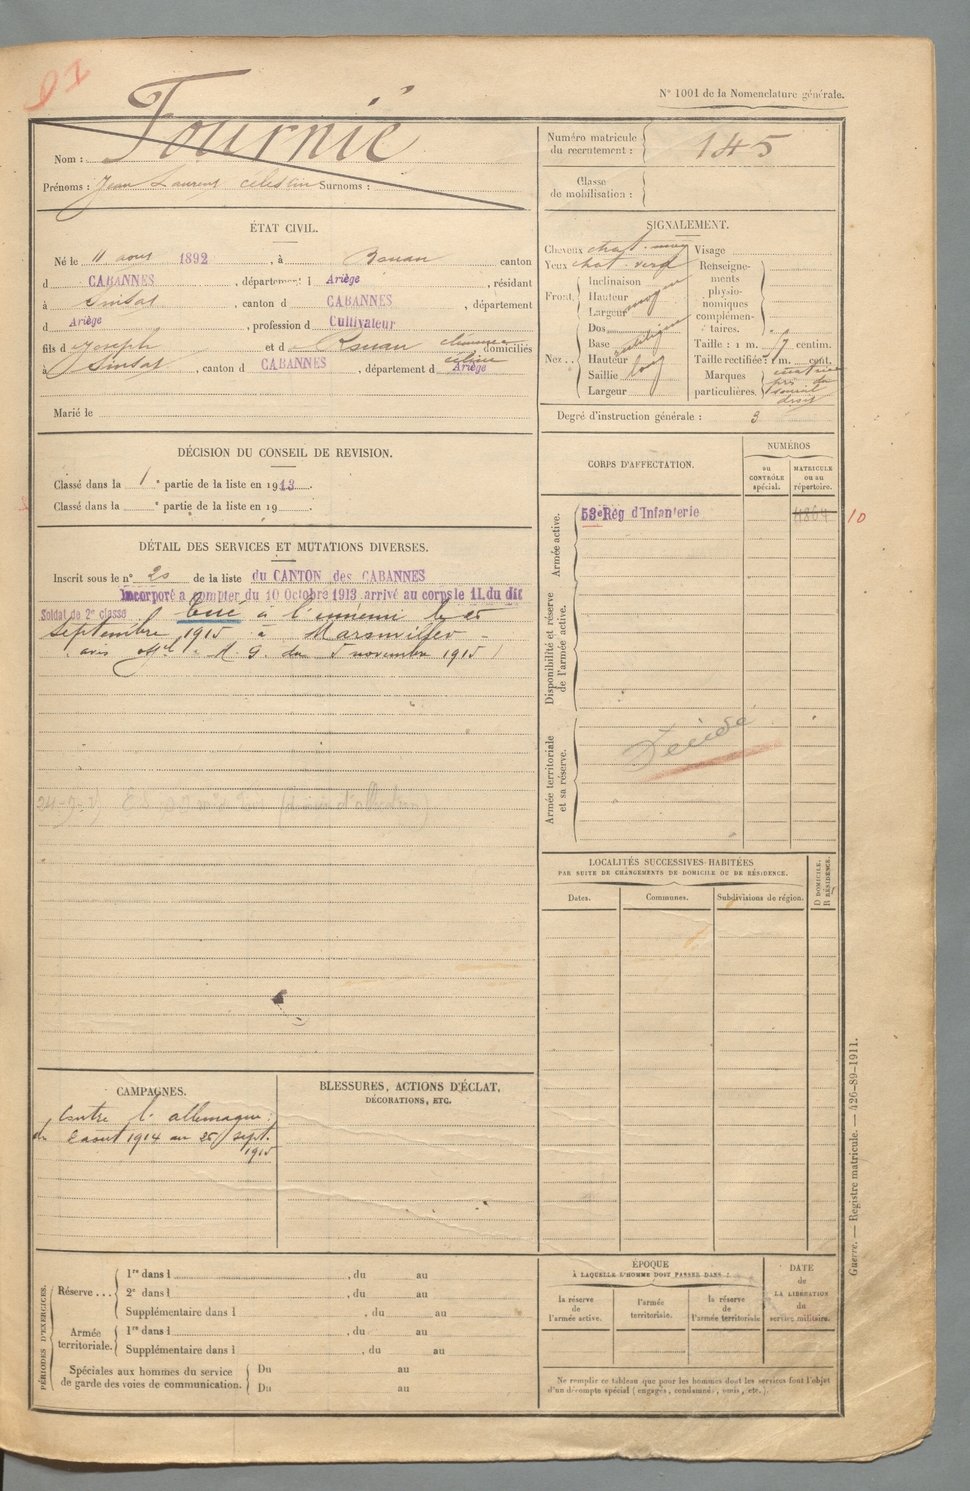 N° 1001 de la Nomenclature générale.
Nom : Fournié
Prénoms : Jean Laurent Célestin Surnoms :
Numéro matricule du recrutement : 145
Classe de mobilisation :
ÉTAT CIVIL.
Né le 11 aout 1892, à canton
d CABANNES, département d Ariège, résidant
à Sinsat, canton d CABANNES, département
d Ariège, profession d Cultivateur
fils d Joseph et d domiciliés
à Sinsat, canton d CABANNES, département d Ariège
Marié le
SIGNALEMENT.
Cheveux chat.
Yeux chat. verd
Front. Inclinaison
Hauteur
Largeur moyen
Nez .. Dos
Base rectiligne
Hauteur
Saillie long
Largeur
Visage
Renseignements physionomiques complémentaires.
Taille : 1 m. centim.
Taille rectifiée : 1 m. cent.
Marques particulières. cicatrice
près du
sourcil
droit
Degré d'instruction générale : 3
DÉCISION DU CONSEIL DE REVISION.
Classé dans la 1e partie de la liste en 1913.
Classé dans la e partie de la liste en 19
DÉTAIL DES SERVICES ET MUTATIONS DIVERSES.
Inscrit sous le n° 20 de la liste du CANTON des CABANNES
Incorporé à compter du 10 Octobre 1913 arrivé au corps le 11 du dit
Soldat de 2e classe Tué à l'ennemi le 25
septembre 1915 à
(avis offel M. G. du 5 novembre 1915)
CORPS D'AFFECTATION.
NUMÉROS
au CONTRÔLE spécial.
MATRICULE ou au répertoire.
Armée active.
53e Rég d'Infanterie 4864 10
Disponibilité et réserve de l'armée active.
Armée territoriale et sa réserve.
Décédé
LOCALITÉS SUCCESSIVES HABITÉES
PAR SUITE DE CHANGEMENTS DE DOMICILE OU DE RÉSIDENCE.
Dates.
Communes.
Subdivisions de région.
D DOMICILE.
R RÉSIDENCE.
CAMPAGNES.
Contre l'allemagne :
du 2 aout 1914 au 25 sept.
1915
BLESSURES, ACTIONS D'ÉCLAT,
DÉCORATIONS, ETC.
PÉRIODES D'EXERCICES.
Réserve ... 1re dans l , du au
2e dans l , du au
Supplémentaire dans l , du au
Armée territoriale. 1re dans l , du au
Supplémentaire dans l , du au
Spéciales aux hommes du service de garde des voies de communication. Du au
Du au
ÉPOQUE
À LAQUELLE L'HOMME DOIT PASSER DANS :
la réserve de l'armée active.
l'armée territoriale.
la réserve de l'armée territoriale
DATE de LA LIBÉRATION du service militaire.
Ne remplir ce tableau que pour les hommes dont les services font l'objet
d'un décompte spécial (engagés, condamnés, omis, etc.).
Guerre. — Registre matricule. — 426-89-1911.